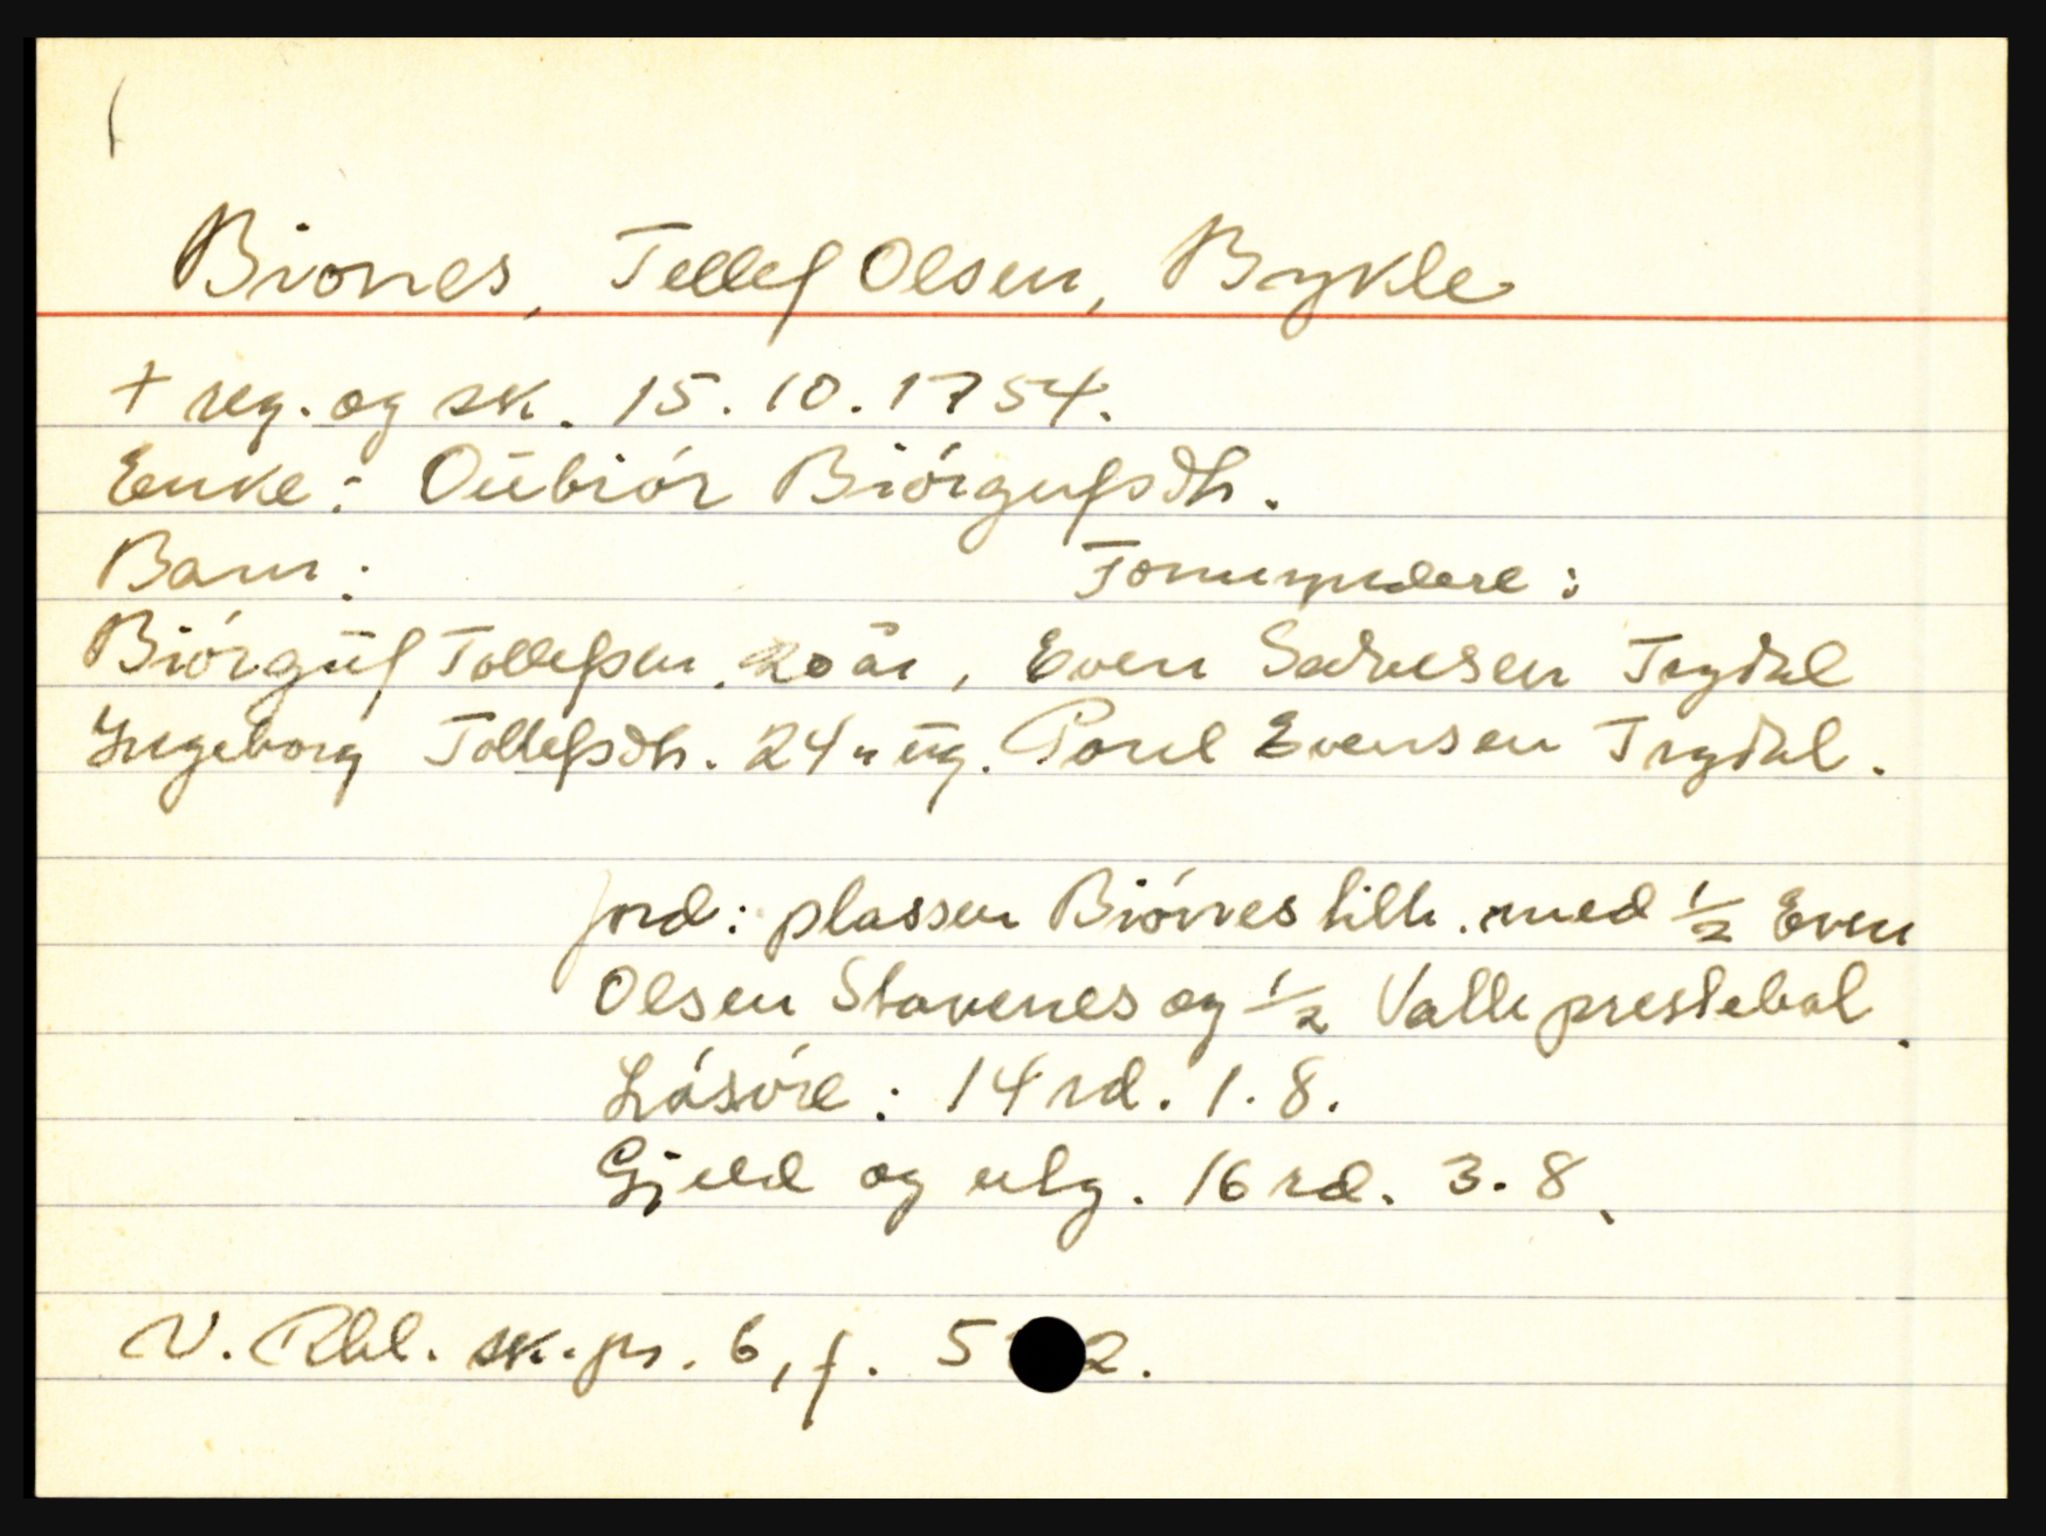 Biones, Tellef Olsen, Bykle
+ reg. og sk. 15.10.1754.
Enke: Oübiór Biórgufsdtr.
Barn: Formyndere:
Biórgüf Tollefsen. 20 år, Even Salvesen Trydal
Ingeborg Tollefsdtr. 24 " ug. Poul Evensen Trydal.
Jord: plassen Biónes tilh. med 1/2 Even
Olsen Stavenes og 1/2 Valle prestebol.
Lósóre: 14 rd. 1.8.
Gjeld og utg. 16 rd. 3.8.
V. Rbl. sk.pr. 6, f.